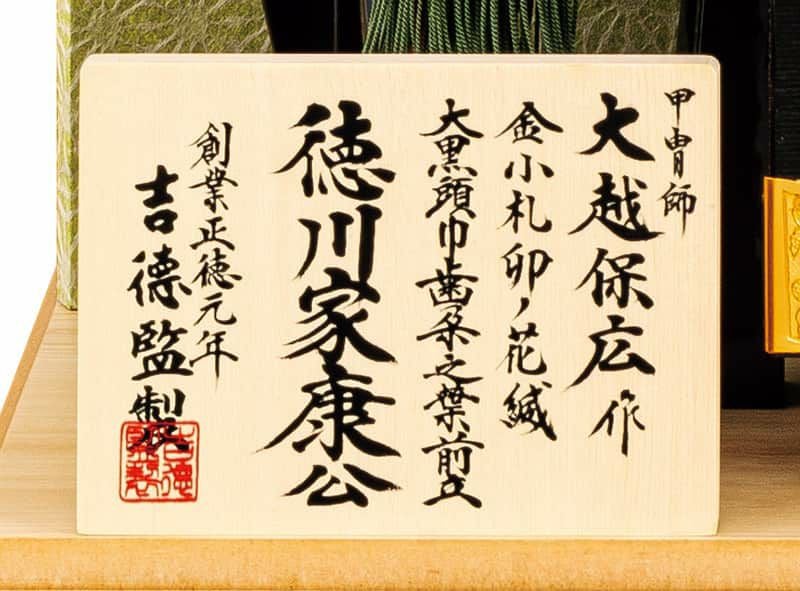 甲冑師
大越保広作
金小札卯ノ花縅
大黒頭巾歯朶之葉前立
徳川家康公
創業正徳元年
吉德監製
吉德監製